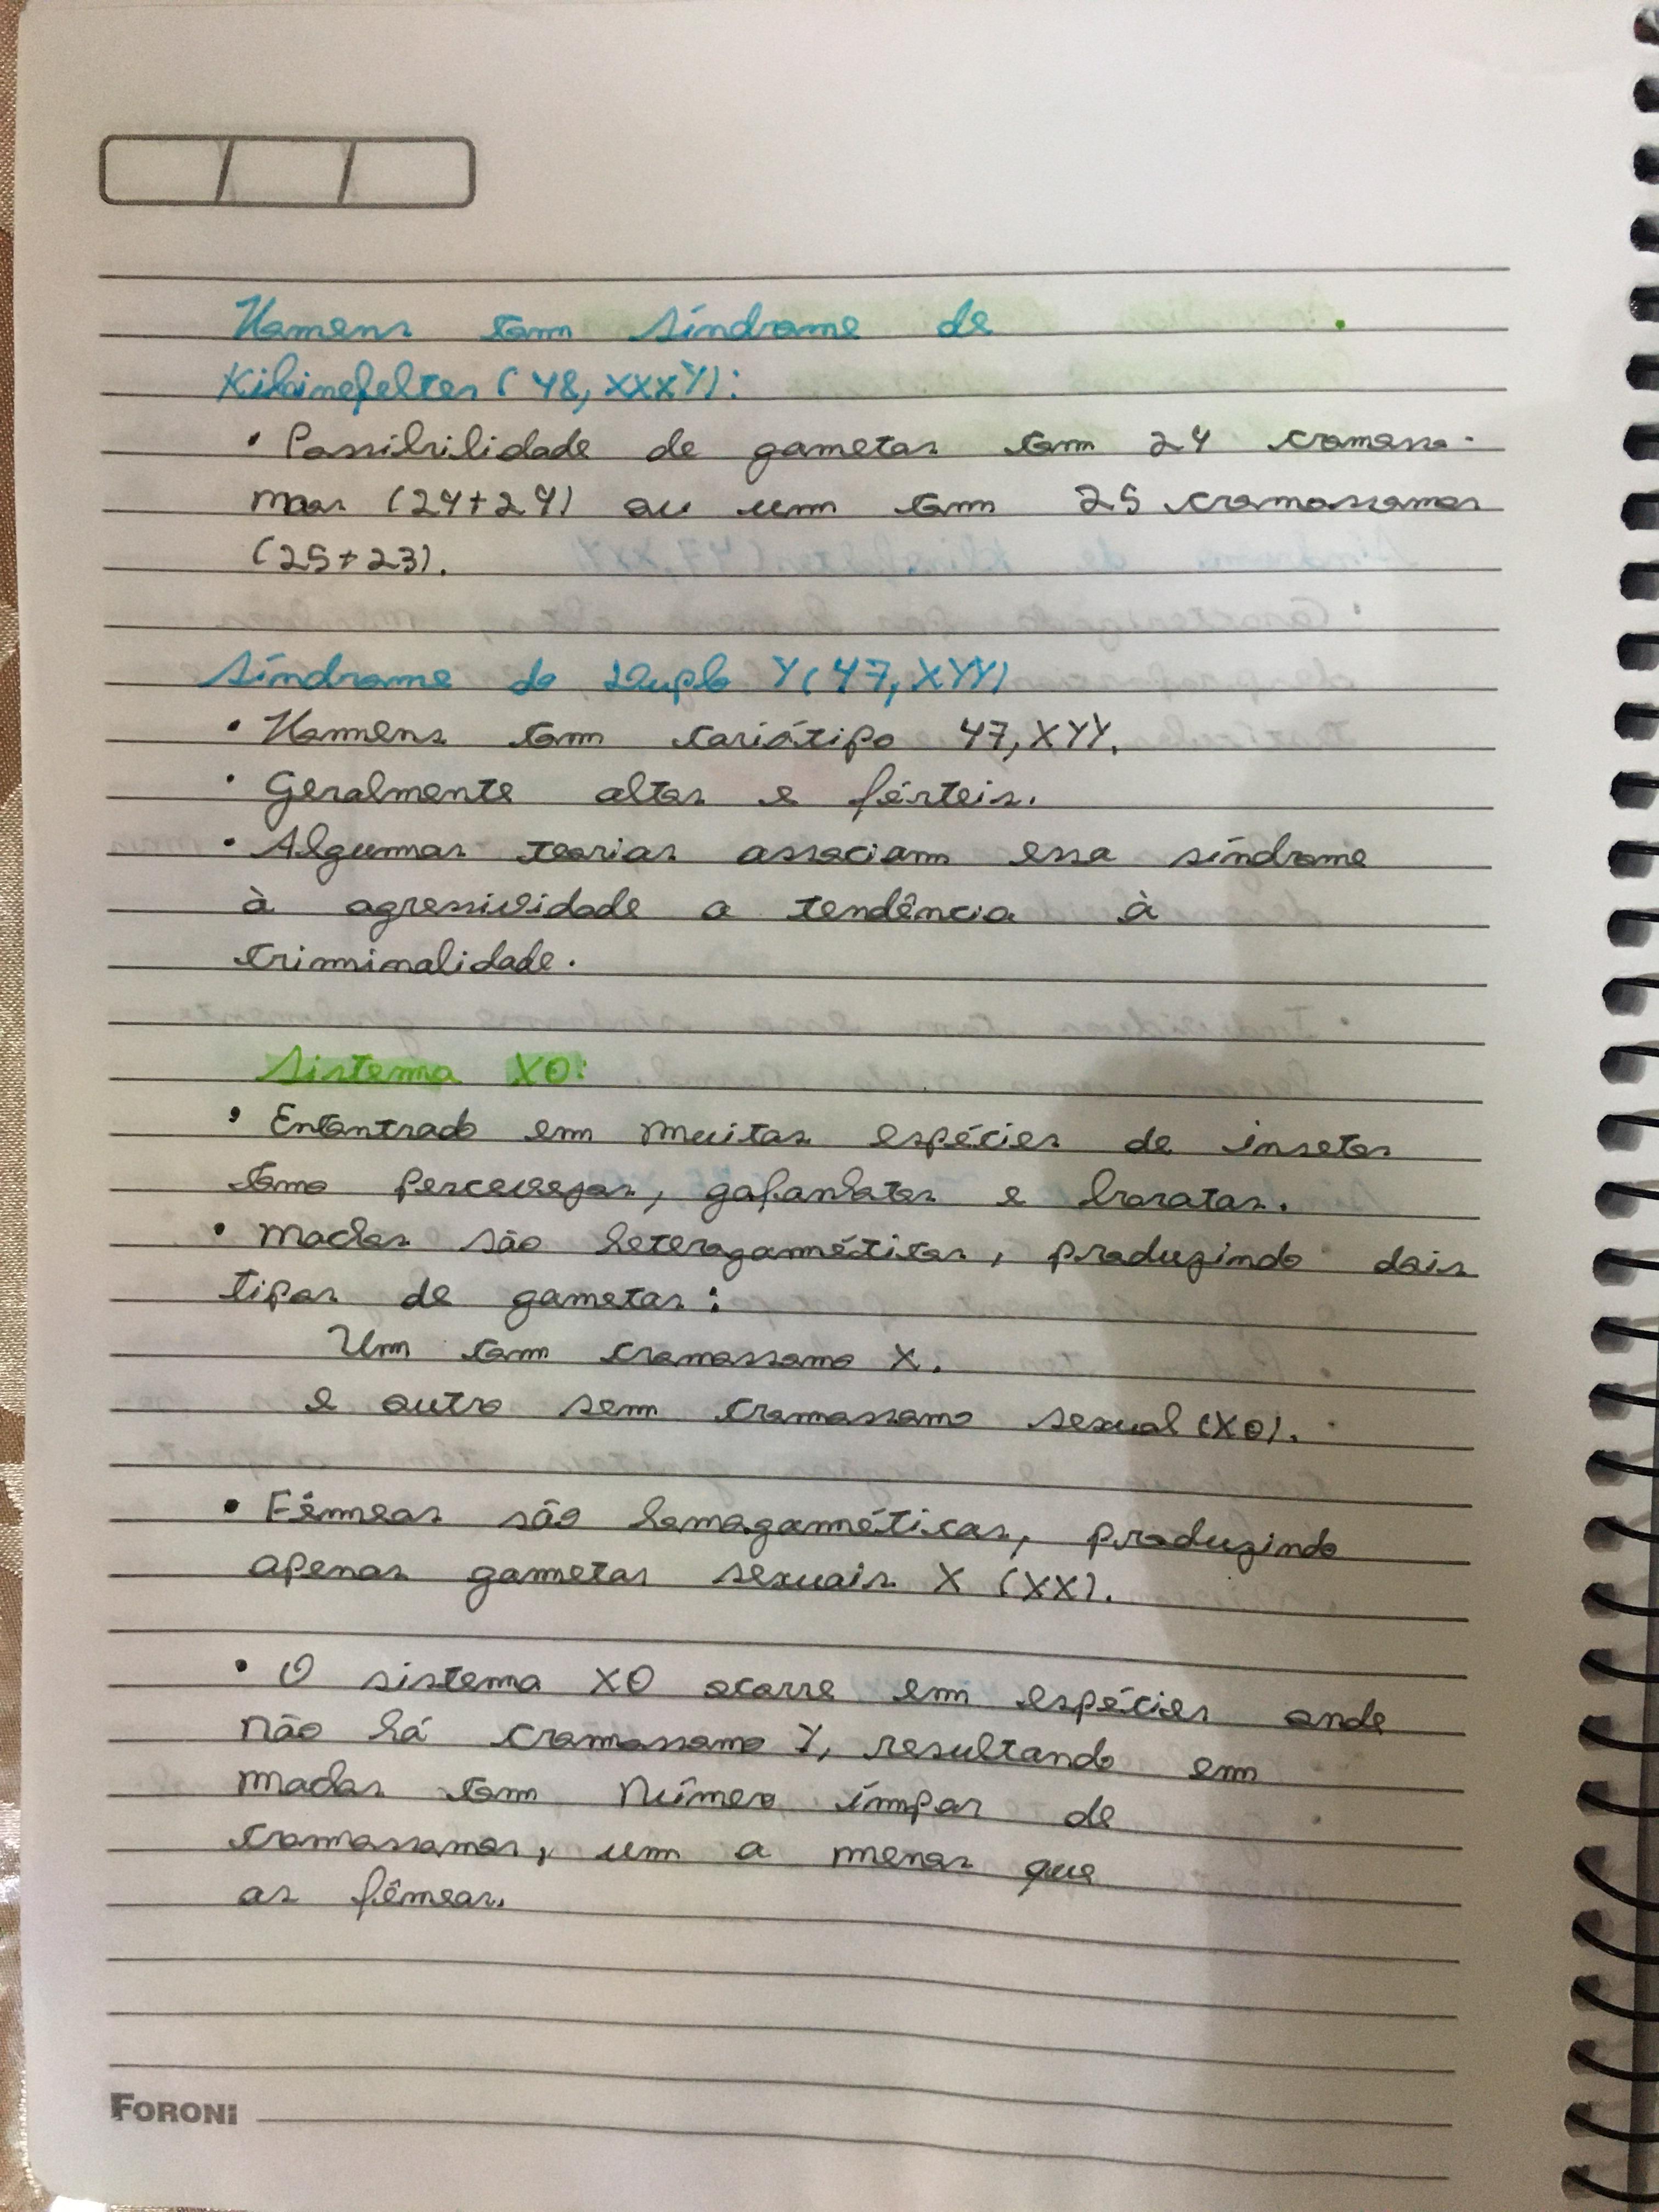 Homens com síndrome de
Kilinefelter (48, XXXY):
• Possibilidade de gametas com 24 cromosso-
mos (24+24) ou um com 25 cromossomos
(25+23).
Síndrome do Duplo Y (47, XYY)
• Homens com cariótipo 47, XYY.
• Geralmente altos e férteis.
• Algumas teorias associam essa síndrome
à agressividade a tendência à
criminalidade.
Sistema X0:
• Encontrado em muitas espécies de insetos
como percevejos, gafanhotos e baratas.
• Machos são heterogaméticos, produzindo dois
tipos de gametas:
Um com cromossomo X.
e outro sem cromossomo sexual (X0).
• Fêmeas são homogaméticas, produzindo
apenas gametas sexuais X (XX).
• O sistema X0 ocorre em espécies onde
não há cromossomo Y, resultando em
machos com número ímpar de
cromossomos, um a menos que
as fêmeas.
FORONI